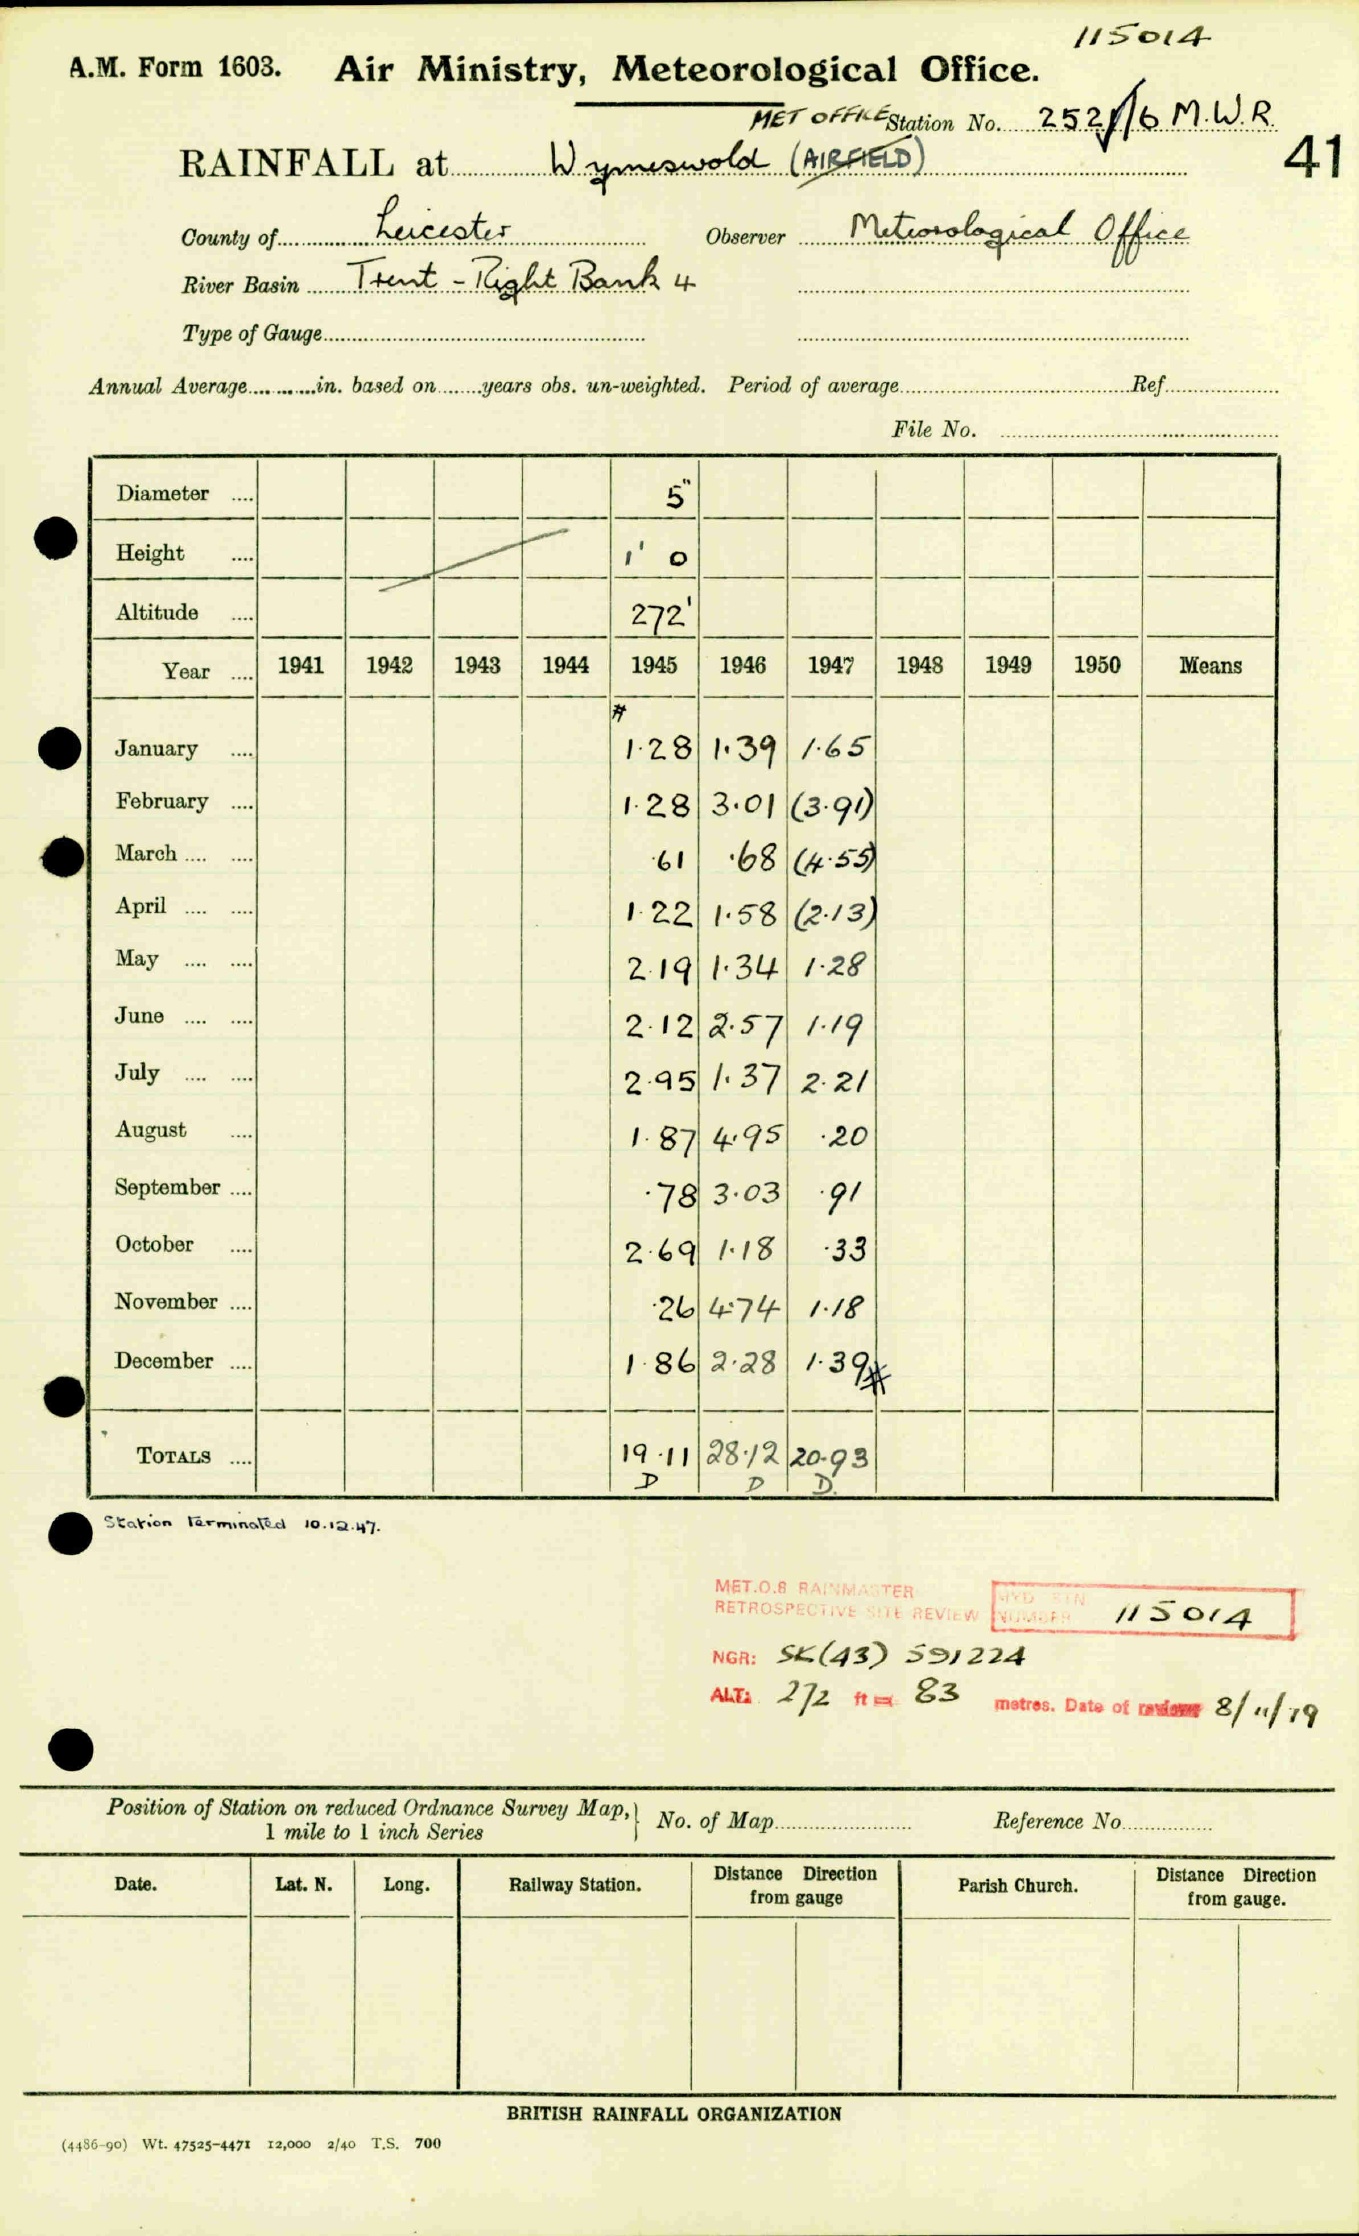 115014
A.M. Form 1603. Air Ministry, Meteorological Office.
MET OFFICE Station No. 2521/6 M.W.R.
RAINFALL at Wymeswold (AIRFIELD) 41
County of Leicester Observer Meteorological Office
River Basin Trent - Right Bank 4
Type of Gauge
Annual Average in. based on years obs. un-weighted. Period of average Ref
File No.
Diameter .... 5"
Height .... 1' 0
Altitude .... 272'
Year .... 1941 1942 1943 1944 1945 1946 1947 1948 1949 1950 Means
#
January .... 1.28 1.39 1.65
February .... 1.28 3.01 (3.91)
March .... .... .61 .68 (4.55)
April .... .... 1.22 1.58 (2.13)
May .... .... 2.19 1.34 1.28
June .... .... 2.12 2.57 1.19
July .... .... 2.95 1.37 2.21
August .... 1.87 4.95 .20
September .... .78 3.03 .91
October .... 2.69 1.18 .33
November .... .26 4.74 1.18
December .... 1.86 2.28 1.39 #
TOTALS .... 19.11 28.12 20.93
D D D.
Station terminated 10.12.47.
MET.O.8 RAINMASTER
RETROSPECTIVE SITE REVIEW STN NUMBER 115014
NGR: SK(43) 591224
ALT: 272 ft = 83 metres. Date of review 8/11/79
Position of Station on reduced Ordnance Survey Map, } No. of Map Reference No.
1 mile to 1 inch Series
Date. Lat. N. Long. Railway Station. Distance Direction from gauge Parish Church. Distance Direction from gauge.
BRITISH RAINFALL ORGANIZATION
(4486-90) Wt. 47525-4471 12,000 2/40 T.S. 700